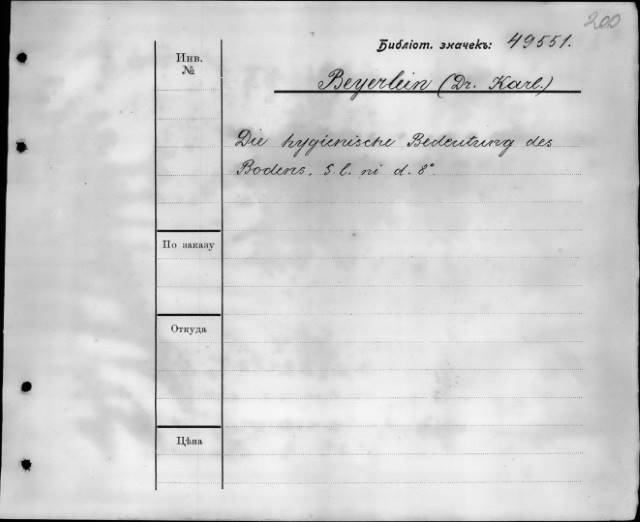 200
Библіот. значекъ: 49551.
Инв.
№
Beyerlein (Dr. Karl.)
Die hygienische Bedeutung des
Bodens. S. l. ni d. 8°.
По заказу
Откуда
Цѣна